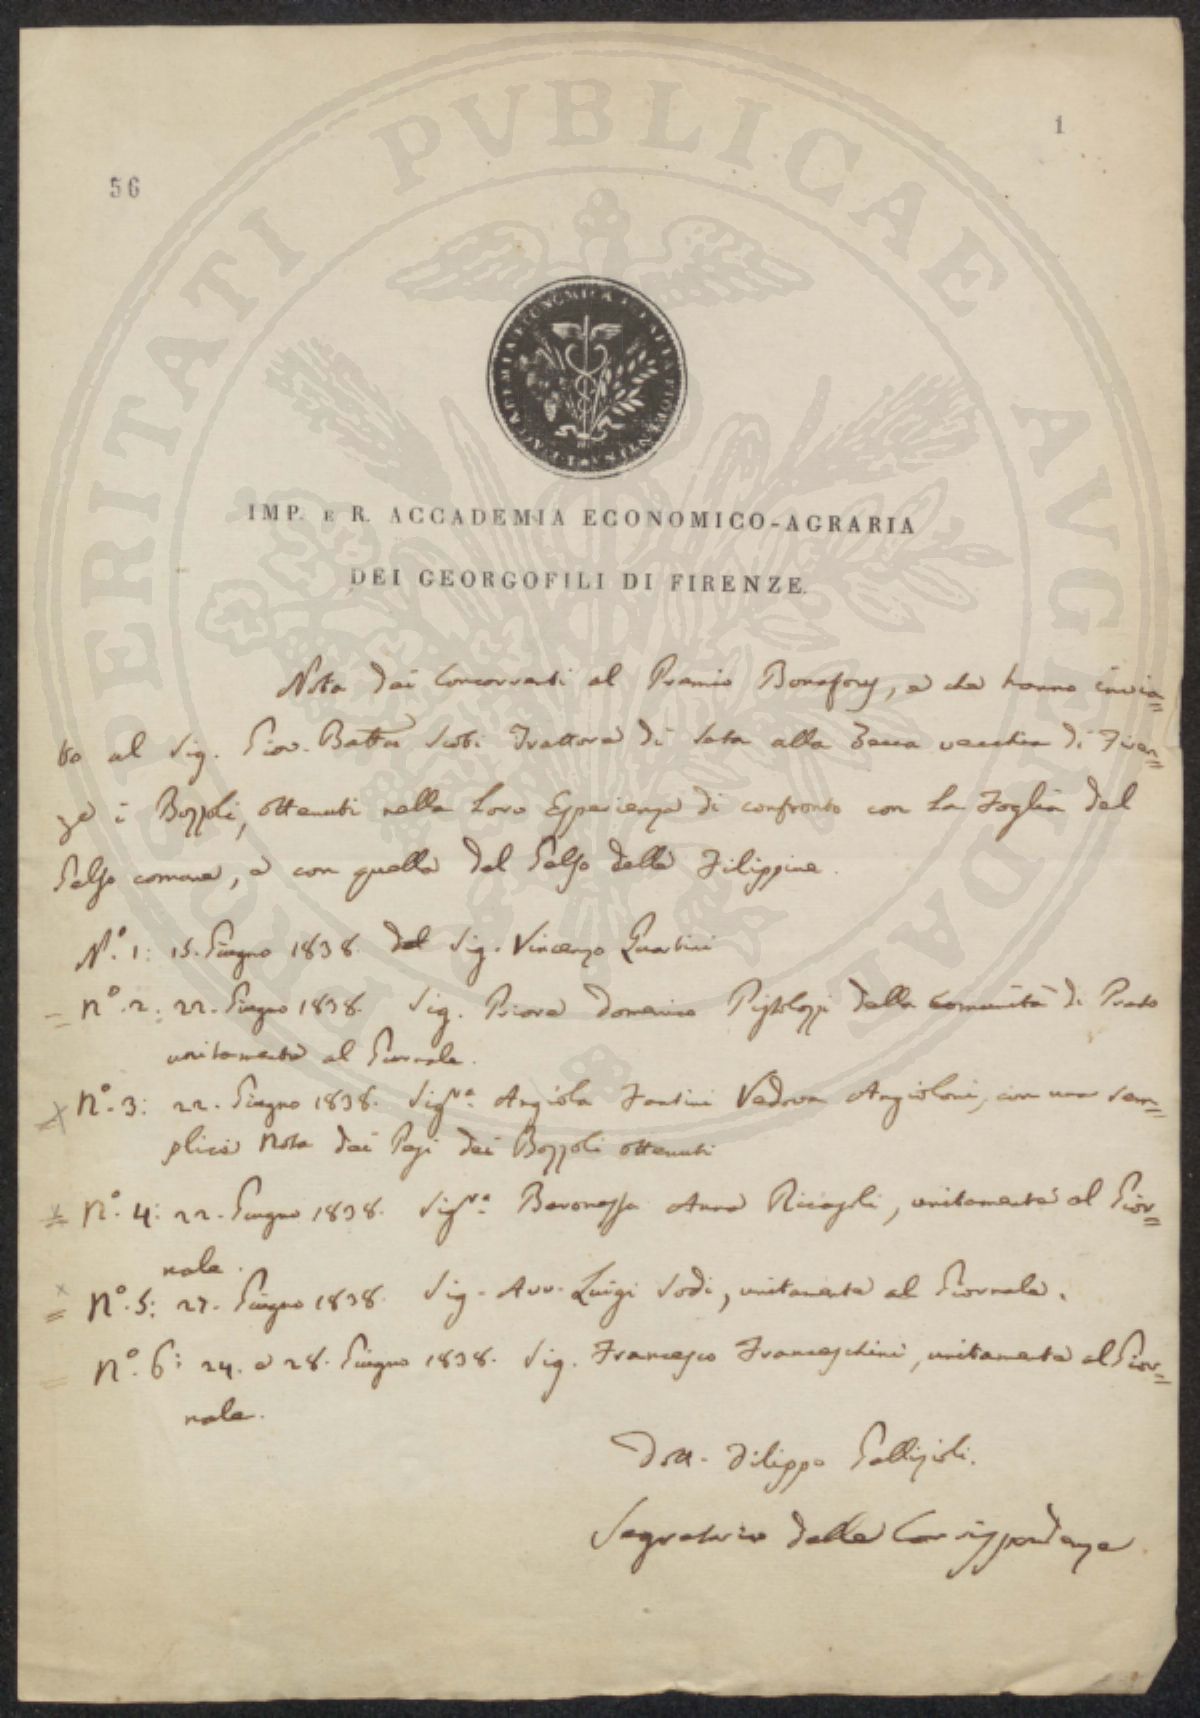 1
56
PROSPERITATI PUBLICAE AUGENDAE
IMP. E R. ACCADEMIA ECONOMICO-AGRARIA
DEI GEORGOFILI DI FIRENZE.
Nota dei Concorrenti al Premio Bonafous, e che hanno invia=
to al Sig. Giov. Batta Scoti Trattore di Seta alla Zecca vecchia di Firen=
ze i Bozzoli, ottenuti nelle loro Esperienze di confronto con la Foglia del
Gelso comune, e con quella del Gelso delle Filippine.
N.° 1: 15. Giugno 1838. del Sig. Vincenzo Guarbini
= N.° 2: 22. Giugno 1838. Sig. Priore Domenico Pistolozzi della Comunità di Prato
unitamente al Giornale.
N.° 3: 22. Giugno 1838. Sigra. Angiola Fantini Vedova Angioloni, con una sem=
plice Nota dei Pesi dei Bozzoli ottenuti
N.° 4: 22. Giugno 1838. Sigra. Baronessa Anna Ricasoli, unitamente al Gior=
nale.
= N.° 5: 27. Giugno 1838. Sig. Avv. Luigi Sodi, unitamente al Giornale.
= N.° 6: 24. e 28. Giugno 1838. Sig. Francesco Franceschini, unitamente al Gior=
nale.
Dott. Filippo Gallizioli.
Segretario delle Corrispondenze